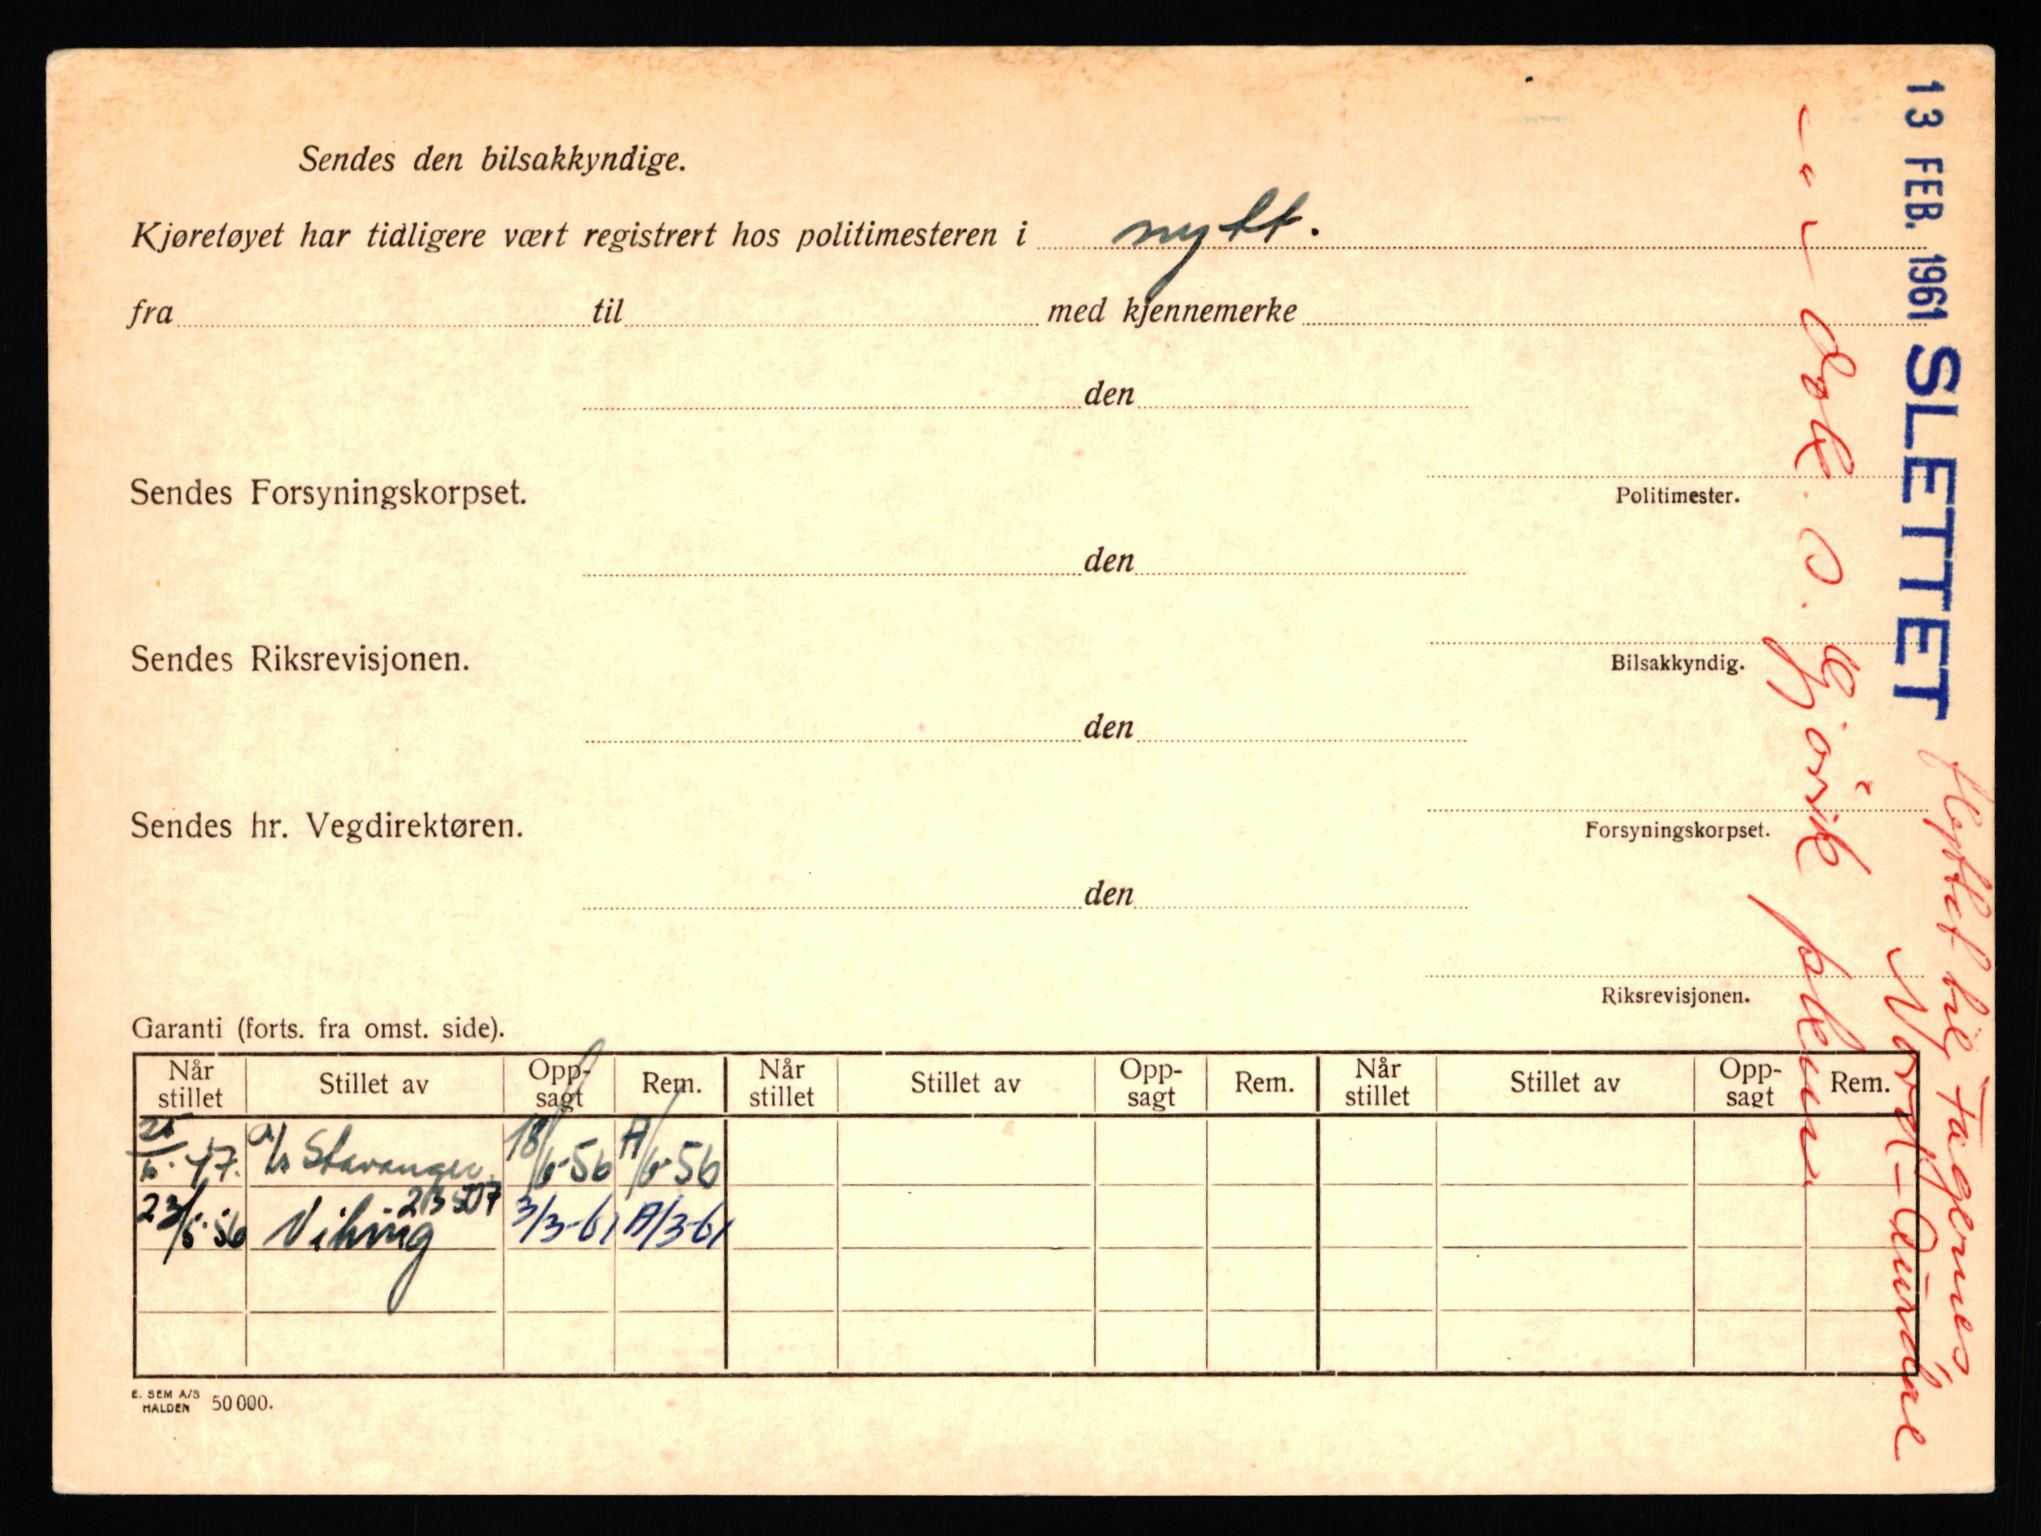 Sendes den bilsakkyndige.
Kjøretøyet har tidligere vært registrert hos politimesteren i nytt.
fra til med kjennemerke
den
Sendes Forsyningskorpset.
Politimester.
den
Sendes Riksrevisjonen.
Bilsakkyndig.
den
Sendes hr. Vegdirektøren.
Forsyningskorpset.
den
Riksrevisjonen.
Garanti (forts. fra omst. side).
Når stillet Stillet av Opp-sagt Rem. Når stillet Stillet av Opp-sagt Rem. Når stillet Stillet av Opp-sagt Rem.
47. a/s Stavanger 18/5-56 A/5-56
23/5-56 Viking 213507 3/3-61 A/3-61
E. SEM A/S
HALDEN 50 000.
13 FEB. 1961 SLETTET flyttet til Fagernes,
Nord-Aurdal
O. Gjøvik